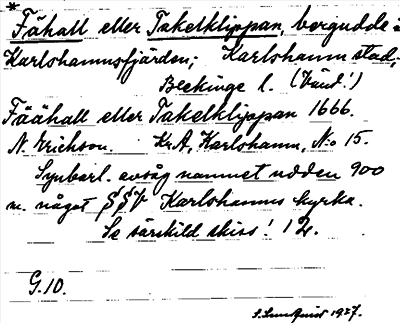 *
Fähall eller Takelklippan, bergudde i
Karlshamnsfjärden; Karlshamn stad,
Blekinge l. (Vänd!)
Fääháll eller Takelklippan 1666.
N. Erichson. Kr.A, Karlshamn, N:o 15.
Synbarl. avsåg namnet udden 900
m. något SSV Karlshamns kyrka.
Se särskild skiss! 12.
G.10.
1927.